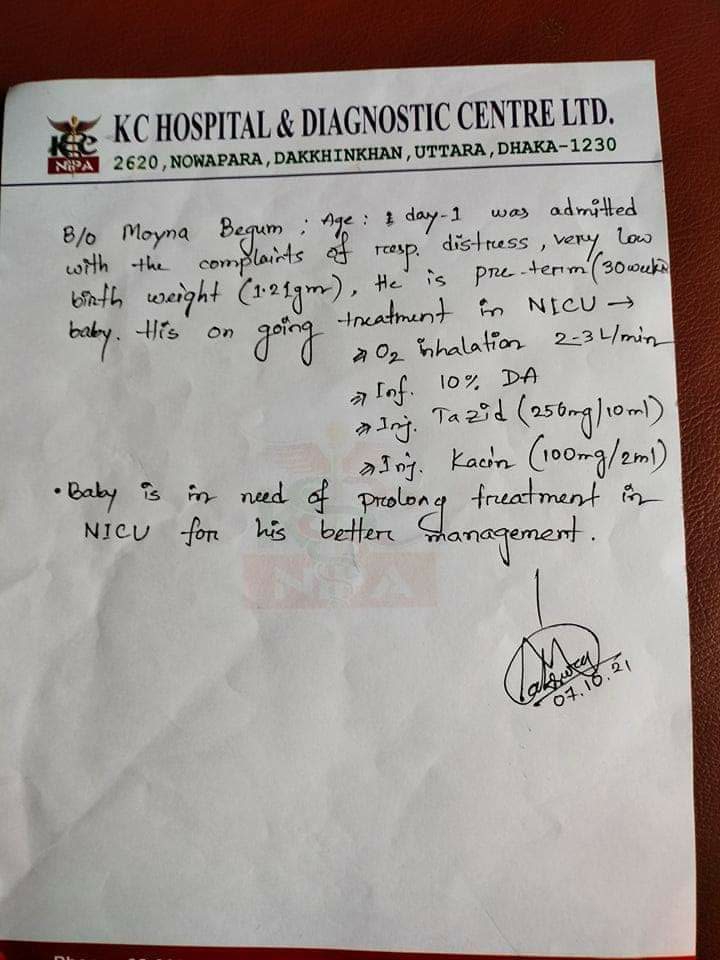 KC HOSPITAL & DIAGNOSTIC CENTRE LTD.
KC
NIPA
2620, NOWAPARA, DAKKHINKHAN, UTTARA, DHAKA-1230
B/O Moyna Begum ; Age : day-1 was admitted
with the complaints of resp. distress, very low
birth weight (1.21gm), He is pre-term (30 weeks)
baby. His on going treatment in NICU →
⇒ O2 inhalation 2-3 L/min
⇒ Inf. 10% DA
⇒ Inj. Tazid (250mg/10ml)
⇒ Inj. Kacin (100mg/2ml)
• Baby is in need of prolong treatment in
NICU for his better management.
NIPA
07.10.21